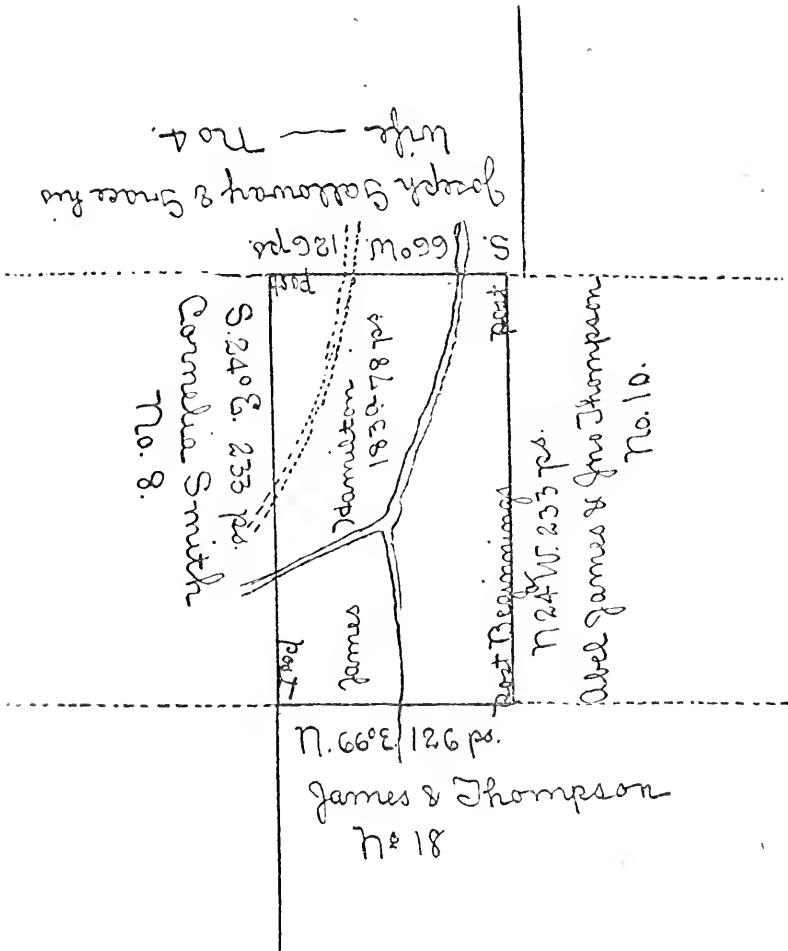 Joseph Galloway & Grace his
Wife — No 4.
S. 66° W. 126 ps.
post
post
S. 24° E. 233 ps.
Cornelia Smith
No. 8.
James Hamilton
183a-78ps
post
post Beginnings
N 24° W. 233 ps.
Abel James & Jno Thompson
No. 10.
N. 66° E. 126 ps.
James & Thompson
No 18